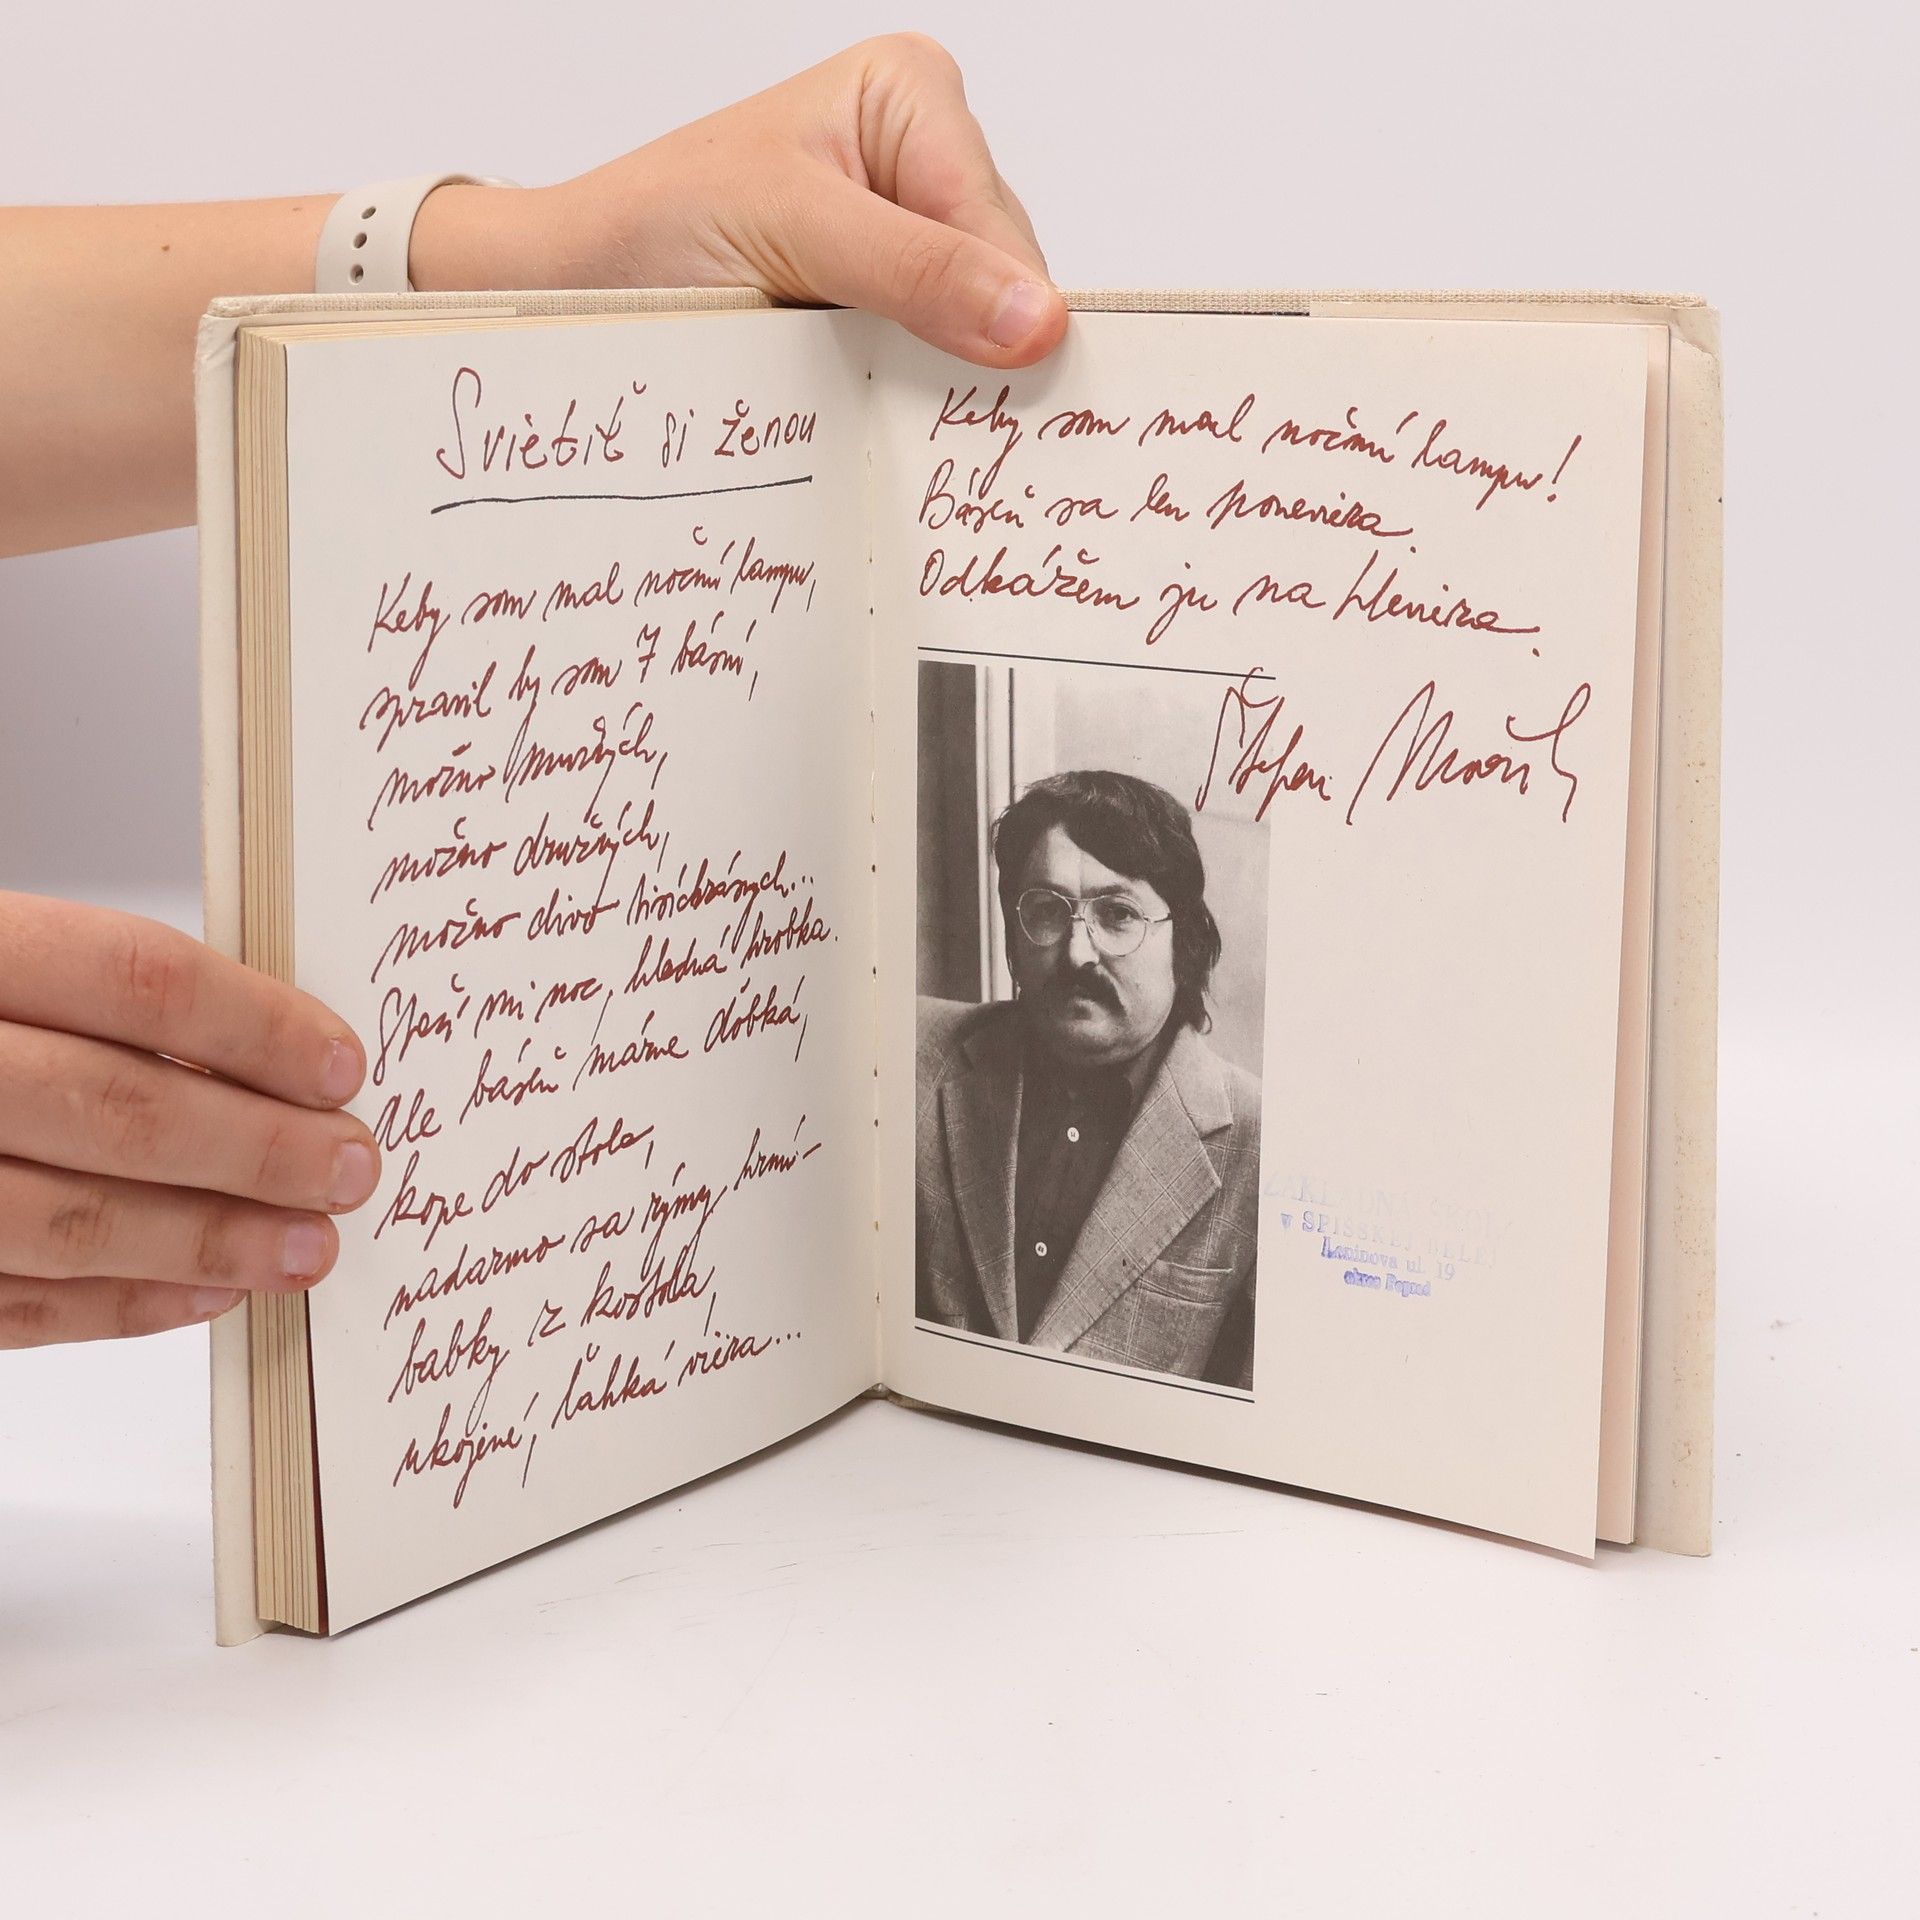 Svietiť si ženou
Keby som mal nočnú lampu,
spravil by som 7 básní,
možno mužných,
možno družných,
možno divo tisíckrásnych...
Stačí mi noc, hladná hrobka.
Ale báseň márne ďobká,
kope do stola,
nadarmo sa rýmy hrnú –
babky z kostola,
ukojené, ľahká viera...
Keby som mal nočnú lampu!
Báseň sa len poneviera.
Odkážem ju na Hleviera.
Štefan Moravčík
ZÁKLADNÁ ŠKOLA
v SPIŠSKEJ BELEJ
Leninova ul. 19
okres Poprad